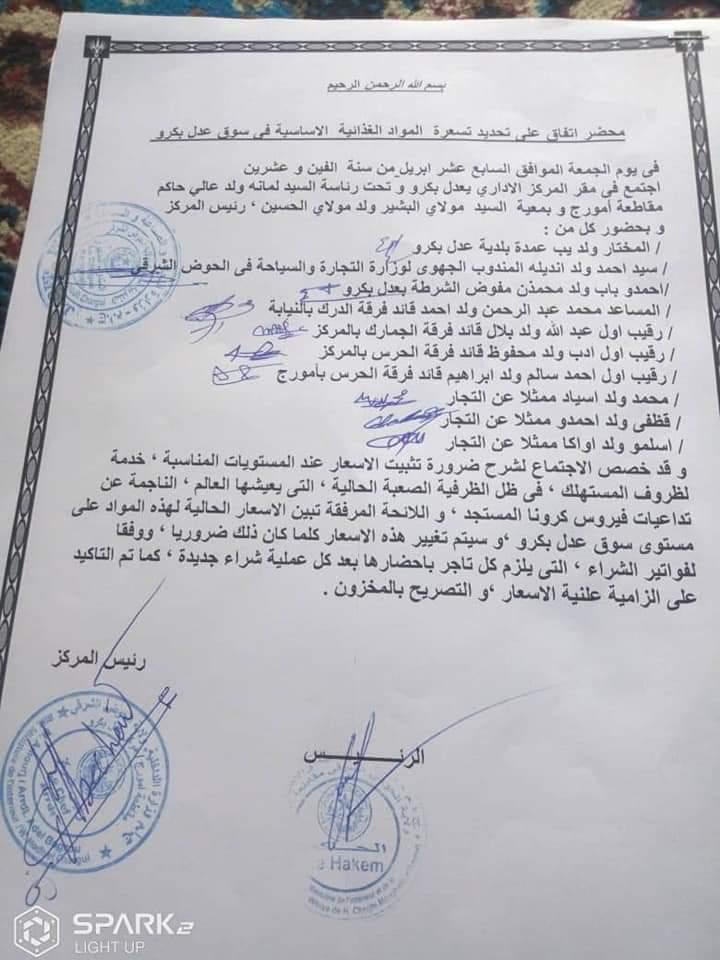 بسم الله الرحمن الرحيم
محضر اتفاق على تحديد تسعرة المواد الغذائية الاساسية في سوق عدل بكرو
في يوم الجمعة الموافق السابع عشر ابريل من سنة الفين و عشرين
اجتمع في مقر المركز الاداري بعدل بكرو و تحت رئاسة السيد لمانه ولد عالي حاكم
مقاطعة أمورج و بمعية السيد مولاي البشير ولد مولاي الحسين ، رئيس المركز
و بحضور كل من :
/ المختار ولد يب عمدة بلدية عدل بكرو
/ سيد احمد ولد انديله المندوب الجهوى لوزارة التجارة والسياحة فى الحوض الشرقي
/احمدو باب ولد محمذن مفوض الشرطة بعدل بكرو
/ المساعد محمد عبد الرحمن ولد احمد قائد فرقة الدرك بالنيابة
/ رقيب اول عبد الله ولد بلال قائد فرقة الجمارك بالمركز
/ رقيب اول ادب ولد محفوظ قائد فرقة الحرس بالمركز
/ رقيب اول احمد سالم ولد ابراهيم قائد فرقة الحرس بأمورج
/ محمد ولد اسياد ممثلا عن التجار
/ قظفى ولد احمدو ممثلا عن التجار
/ اسلمو ولد اواكا ممثلا عن التجار
و قد خصص الاجتماع لشرح ضرورة تثبيت الاسعار عند المستويات المناسبة ، خدمة
لظروف المستهلك ، فى ظل الظرفية الصعبة الحالية ، التى يعيشها العالم ، الناجمة عن
تداعيات فيروس كرونا المستجد ، و اللائحة المرفقة تبين الاسعار الحالية لهذه المواد على
مستوى سوق عدل بكرو ،و سيتم تغيير هذه الاسعار كلما كان ذلك ضروريا ، ووفقا
لفواتير الشراء ، التى يلزم كل تاجر باحضارها بعد كل عملية شراء جديدة ، كما تم التاكيد
على الزامية علنية الاسعار ،و التصريح بالمخزون .
رئيس المركز
الرئــيــــس
Hakem
SPARK2
LIGHT UP